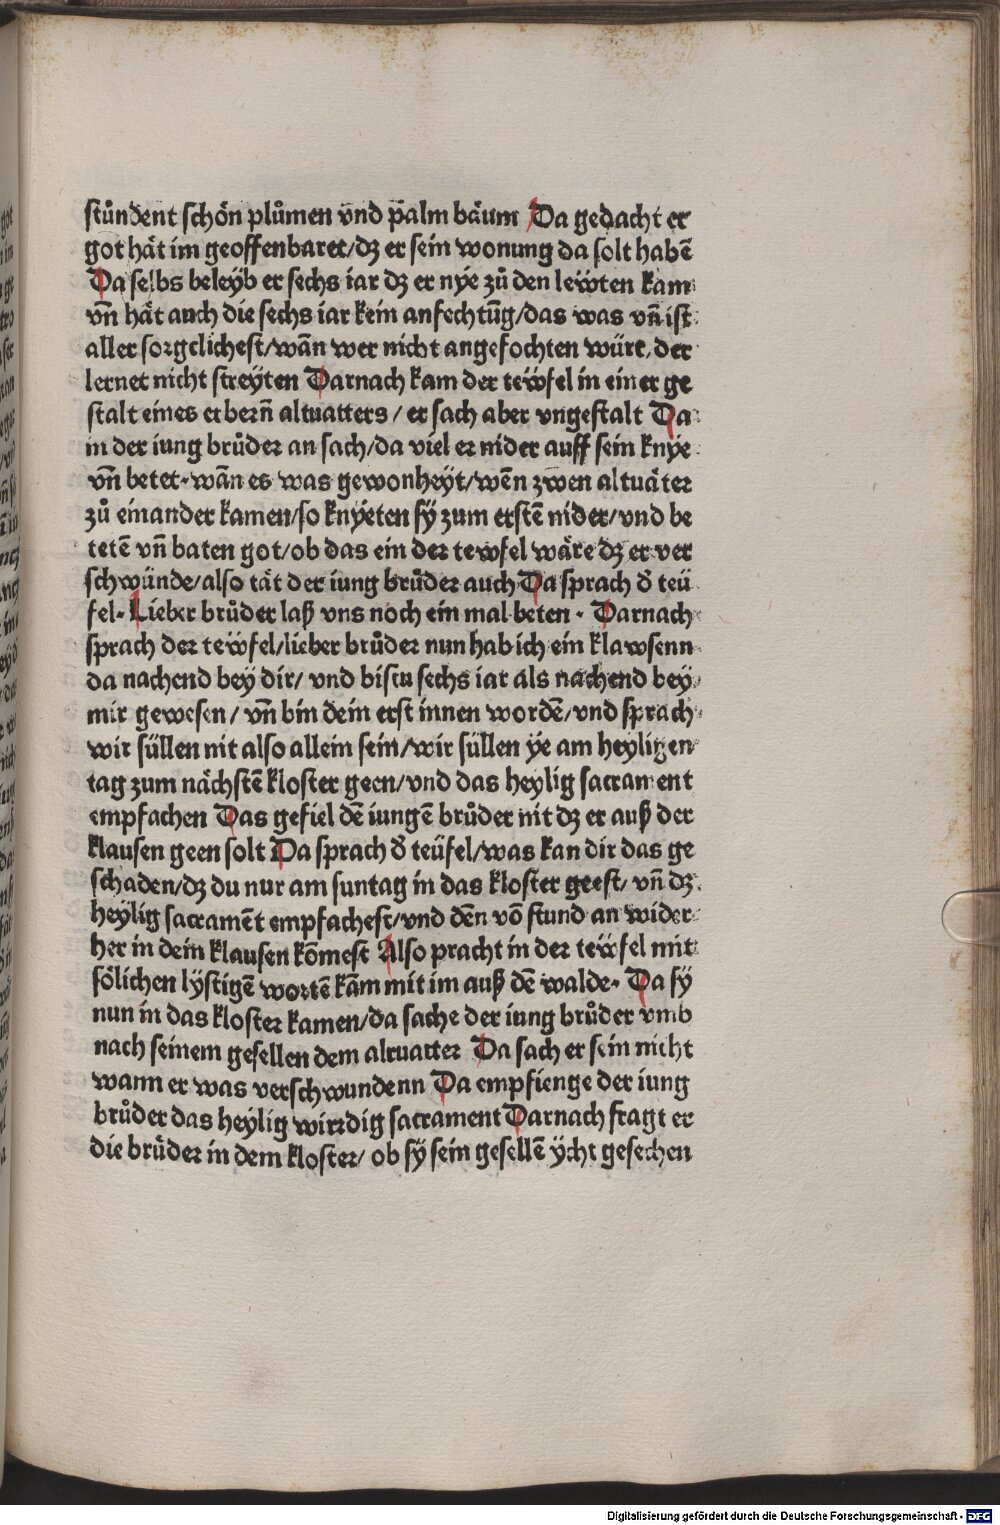 stůndent schön plůmen vnd palm bäum Da gedacht er
got hät im geoffenbaret/dʒ er sein wonung da solt habē
Da selbs beleyb er sechs iar dʒ er nye zů den leẅten kam
vn̄ hät auch die sechs iar kein anfechtūg/das was vn̄ ist
aller sorgclichest/wān wer nicht angefochten würt/der
lernet nicht streyten Darnach kam der teẅfel in einer ge
stalt eines erbern̄ altuatters/er sach aber vngestalt Da
in der iung brůder an sach/da viel er nider auff sein knye
vn̄ betet·wān es was gewonheyt/wēn zwen altuäter
zů einander kamen/so knyeten sÿ zum erstē nider/vnd be
tetē vn̄ baten got/ob das ein der tewfel wäre dʒ er ver
schwünde/also tät der iung brůder auch Da sprach d̄ teü
fel·Lieber brůder laß vns noch ein mal beten·Darnach
sprach der teẅfel/lieber brůder nun hab ich ein klawsenn
da nachend bey dir/vnd bistu sechs iar als nachend bey
mir gewesen/vn̄ bin dein erst innen wordē/vnd sprach
wir süllen nit also allein sein/wir süllen ye am heyligen
tag zum nächstē kloster geen/vnd das heylig sacrament
empfachen Das gefiel dē iungē brůder nit dʒ er auß der
klausen geen solt Da sprach d̄ teüfel/was kan dir das ge
schaden/dʒ du nur am suntag in das kloster geest/vn̄ dʒ
heylig sacramēt empfachest/vnd dēn vō stund an wider
her in dein klausen kōmest Also pracht in der teẅfel mit
sölichen lystigē wortē kām mit im auß dē walde·Da sÿ
nun in das kloster kamen/da sache der iung brůder vmb
nach seinem gesellen dem altuatter Da sach er sein nicht
wann er was verschwundenn Da empfienge der iung
brůder das heylig wirrdig sacrament Darnach fragt er
die brůder in dem kloster/ob sÿ sein gesellē ycht gesechen
Digitalisierung gefördert durch die Deutsche Forschungsgemeinschaft - DFG